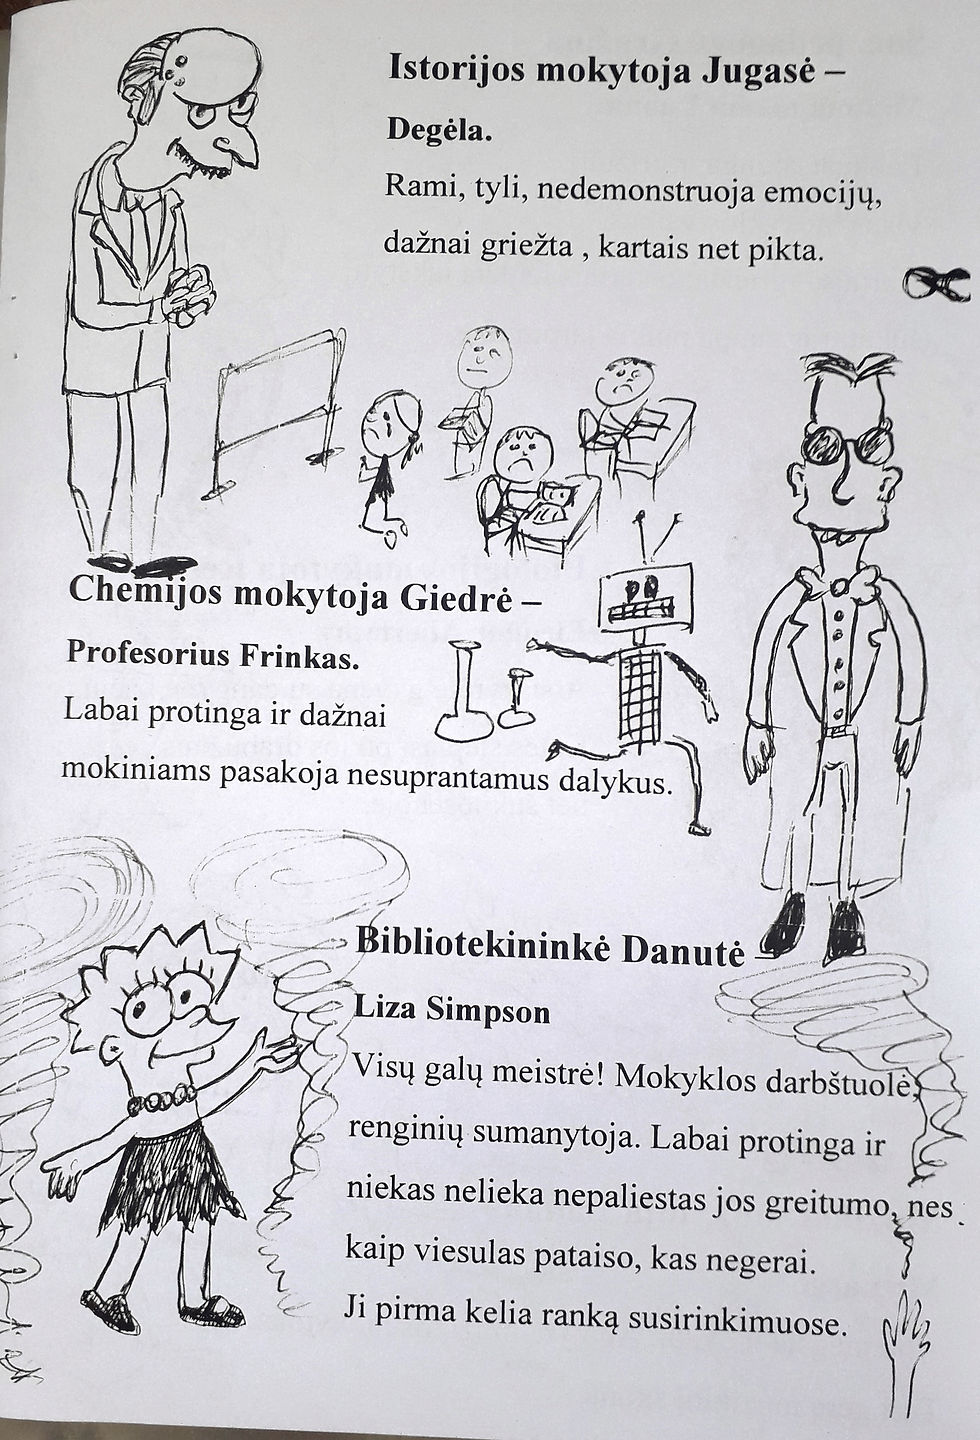 Istorijos mokytoja Jugasė –
Degėla.
Rami, tyli, nedemonstruoja emocijų,
dažnai griežta , kartais net pikta.
Chemijos mokytoja Giedrė –
Profesorius Frinkas.
Labai protinga ir dažnai
mokiniams pasakoja nesuprantamus dalykus.
Bibliotekininkė Danutė –
Liza Simpson
Visų galų meistrė! Mokyklos darbštuolė,
renginių sumanytoja. Labai protinga ir
niekas nelieka nepaliestas jos greitumo, nes
kaip viesulas pataiso, kas negerai.
Ji pirma kelia ranką susirinkimuose.